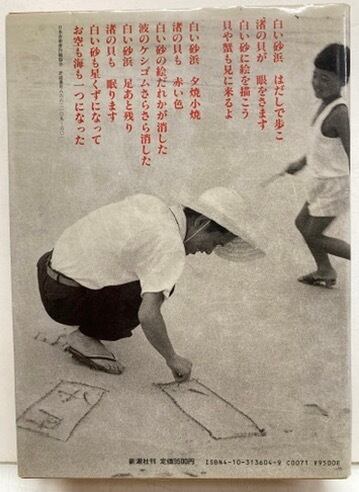 白い砂浜　はだしで歩こ
渚の貝が　眼をさます
白い砂に絵を描こう
貝や蟹も見に来るよ
白い砂浜　夕焼小焼
渚の貝も　赤い色
白い砂の絵だれかが消した
波のケシゴムさらさら消した
白い砂浜　足あと残り
渚の貝も　眠ります
白い砂も星くずになって
お空も海も一つになった
新潮社刊 定価9500円
ISBN4-10-313604-9 C0071 ¥9500E